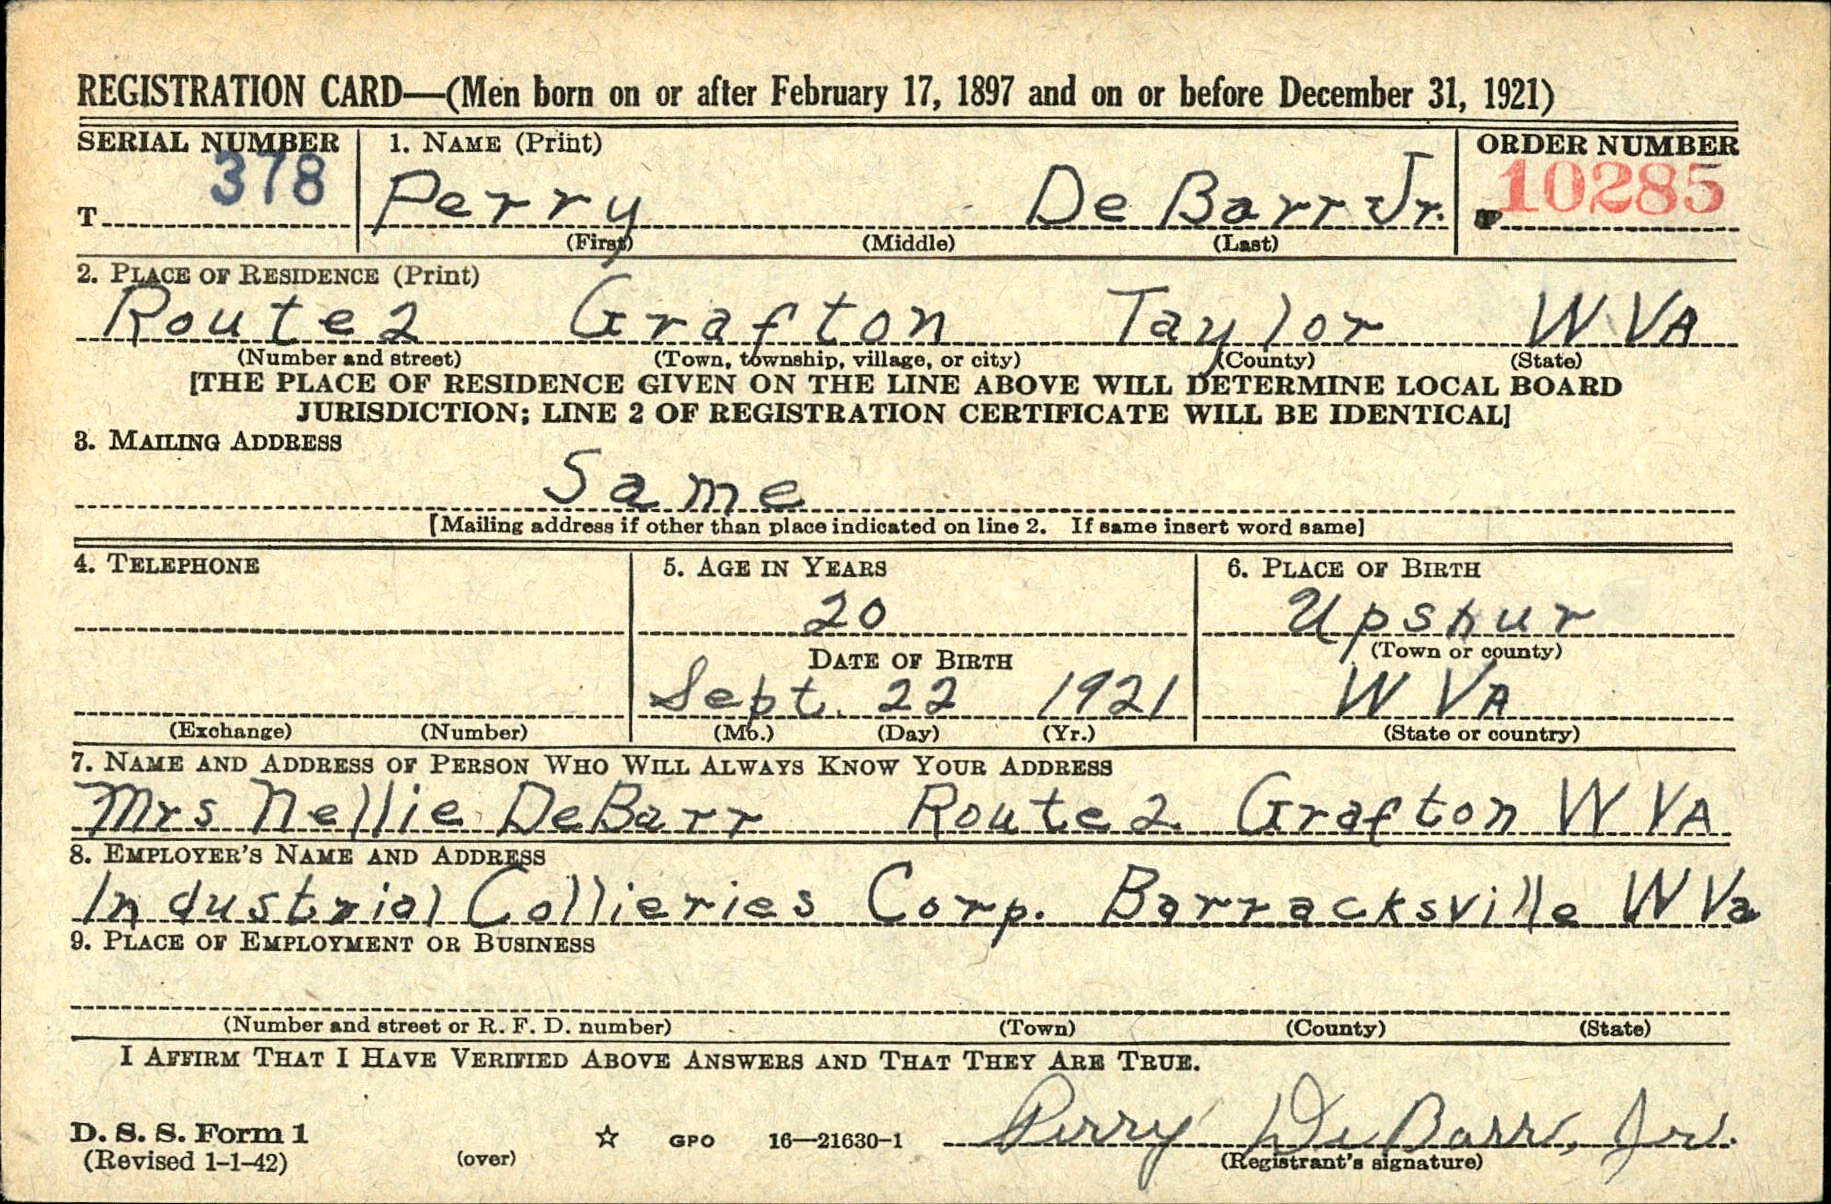 REGISTRATION CARD—(Men born on or after February 17, 1897 and on or before December 31, 1921)
SERIAL NUMBER 1. NAME (Print) ORDER NUMBER
378 Perry De Barr Jr. 10285
T
(First) (Middle) (Last)
2. PLACE OF RESIDENCE (Print)
Route 2 Grafton Taylor W VA
(Number and street) (Town, township, village, or city) (County) (State)
[THE PLACE OF RESIDENCE GIVEN ON THE LINE ABOVE WILL DETERMINE LOCAL BOARD
JURISDICTION; LINE 2 OF REGISTRATION CERTIFICATE WILL BE IDENTICAL]
3. MAILING ADDRESS
Same
[Mailing address if other than place indicated on line 2. If same insert word same]
4. TELEPHONE 5. AGE IN YEARS 6. PLACE OF BIRTH
20 Upshur
DATE OF BIRTH (Town or county)
Sept. 22 1921 W VA
(Exchange) (Number) (Mo.) (Day) (Yr.) (State or country)
7. NAME AND ADDRESS OF PERSON WHO WILL ALWAYS KNOW YOUR ADDRESS
Mrs Nellie DeBarr Route 2 Grafton W VA
8. EMPLOYER'S NAME AND ADDRESS
Industrial Collieries Corp. Barracksville W Va
9. PLACE OF EMPLOYMENT OR BUSINESS
(Number and street or R. F. D. number) (Town) (County) (State)
I AFFIRM THAT I HAVE VERIFIED ABOVE ANSWERS AND THAT THEY ARE TRUE.
D. S. S. Form 1 GPO 16—21630-1 Perry De Barr, Jr.
(Revised 1-1-42) (over) (Registrant's signature)